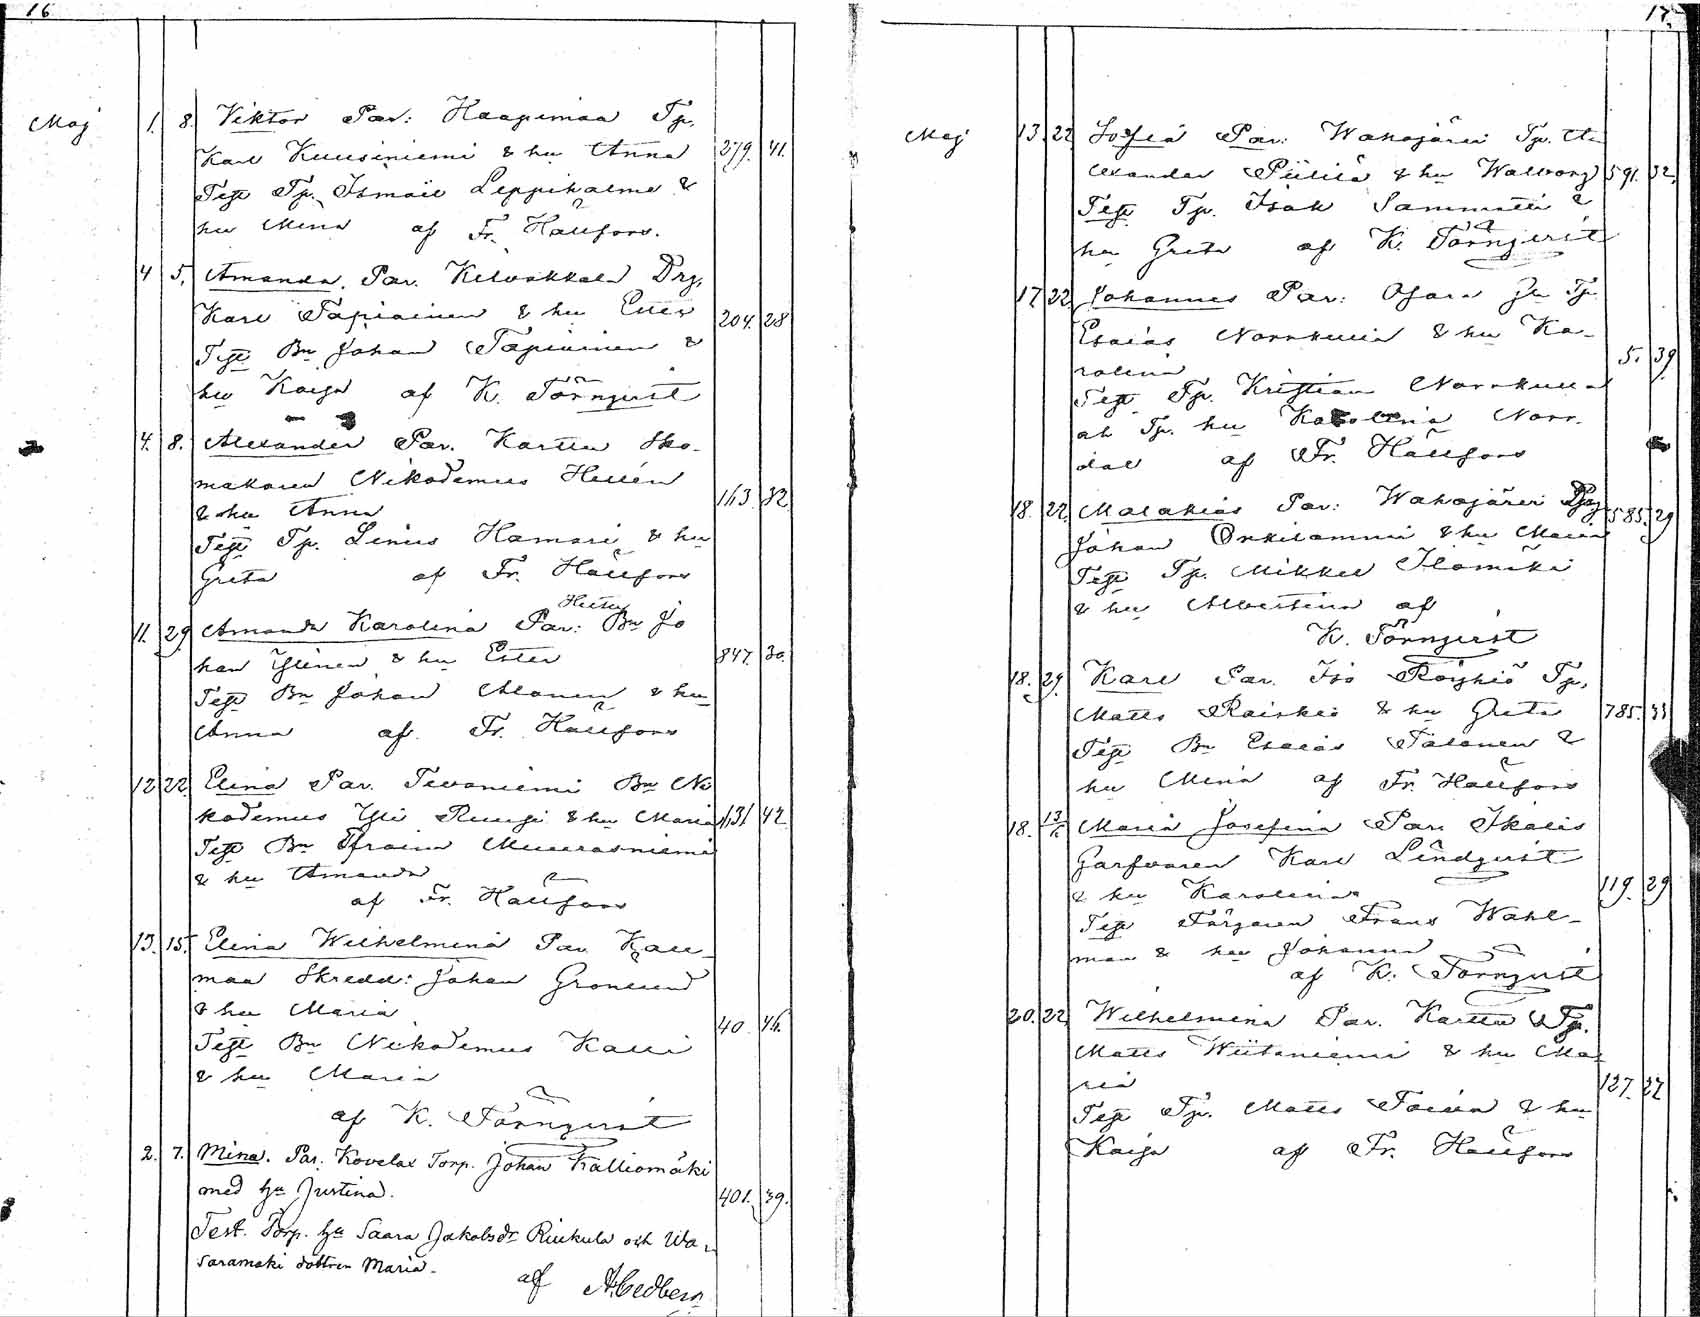 16
Maj 1. 8. Viktor Par: Haapimaa Tp.
Karl Kuusiniemi & hu Anna 279. 41.
Test Tp. Ismaël Leppihalme &
hu Mina af Fr. Hällfors.
4 5. Amanda. Par. Kilvakkala Drg.
Karl Tapiainen & hu Ester 204. 28
Test Bn Johan Tapiainen &
hu Kaisa af K. Törnqvist
4. 8. Alexander Par. Karttu Sko-
makaren Nikodemus Hellén
& hu Anna 163 32
Test Tp. Linus Hamari & hu
Greta af Fr. Hällfors
11. 29. Amanda Karolina Par: Bn Jo
han Ylinen & hu Ester 847. 30.
Test Bn Johan Alanen & hu
Anna af Fr. Hällfors
12 22. Elina Par. Tevaniemi Bn Ni
kodemus Yli Ruusi & hu Maria 42
Test Bn Efraim Muurasniemi
& hu Amanda
af Fr. Hällfors
13. 15. Elina Wilhelmina Par. Kall-
maa Skredd: Johan Grönlund
& hu Maria 40
Test Bn Nikodemus Kalli
& hu Maria
af K. Törnqvist
2. 7. Mina. Par. Kovelax Torp. Johan Kalliomäki
med hu Justina. 401. 39.
Test. Torp. hu Saara Jakobsdr och
dottren Maria.
af A. Cedberg
17.
Maj 13. 22 Sofia Par: Wahojärvi Tp. A
lexander Piiliä & hu Walborg 591. 32.
Test Tp. Isak Sammatti &
hu Greta af K. Törnqvist
17 22 Johannes Par: Osara Tp
Esaias Norrkulla & hu Ka-
rolina 5. 39
Test Tp. Kristian Norrkulla
hu Karolina Norr-
dal af Fr. Hällfors
18. 22. Malakias Par: Wahojärvi Drg 585. 29
Johan Onkilammi & hu Maria
Test Tp. Mikkel Ilomäki
& hu Albertina af
K. Törnqvist
18. 29. Karl Par. Iso Röyhiö Tp.
Matts Raiskio & hu Greta 785. 33
Test Bn Esaias Talonen &
hu Mina af Fr. Hällfors
18. 13/6 Maria Josefina Par. Ikalis
Garfvaren Karl Lindqvist
& hu Karolina 119. 29
Test Färgaren Frans Wahl-
man & hu Johanna
af K. Törnqvist
20. 22 Wilhelmina Par. Karttu Tp.
Matts Wiitaniemi & hu Ma-
ria 127. 27
Test Tp. Matts & hu
Kaisa af Fr. Hällfors